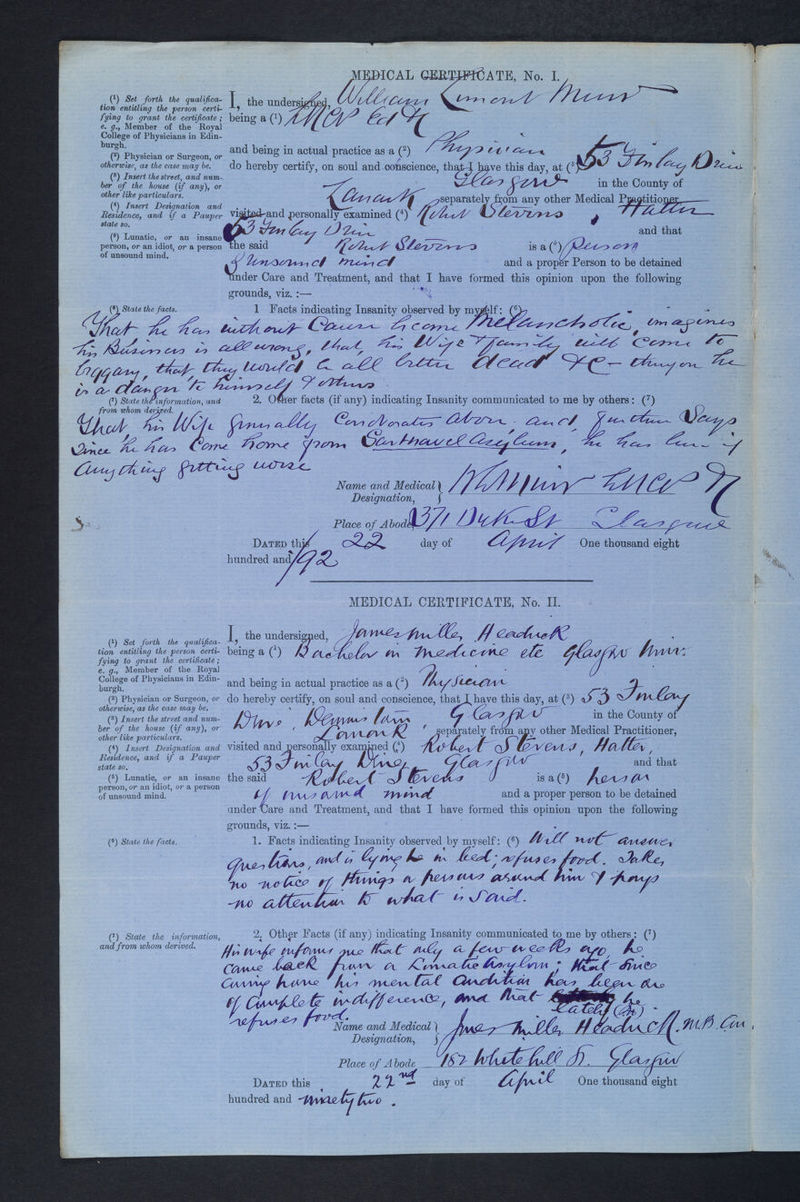 MEDICAL CERTIFICATE, No. I.
(1) Set forth the qualifica-
tion entitling the person certi-
fying to grant the certificate;
e. g., Member of the Royal
College of Physicians in Edin-
burgh.
(2) Physician or Surgeon, or
otherwise, as the case may be.
(3) Insert the street, and num-
ber of the house (if any), or
other like particulars.
(4) Insert Designation and
Residence, and if a Pauper
state so.
(5) Lunatic, or an insane
person, or an idiot, or a person
of unsound mind.
I, the undersigned, William Limont Muir
being a (1) LRCP Ed &
and being in actual practice as a (2) Physician
do hereby certify, on soul and conscience, that I have this day, at (3) 53 Finlay Drive
Glasgow in the County of
Lanark separately from any other Medical Practitioner,
visited and personally examined (4) Robert Stevens, Hatter
53 Finlay Drive and that
the said Robert Stevens is a (5) Person
of Unsound mind and a proper Person to be detained
under Care and Treatment, and that I have formed this opinion upon the following
grounds, viz. :—
(6) State the facts.
1 Facts indicating Insanity observed by myself: (6)
That he has without Cause become Melancholic, imagines
his Business is all wrong, that, his Wife & family will come to
beggary, that they would be all better dead &c - thereon he
is a danger to himself & others
(7) State the information, and
from whom derived.
2. Other facts (if any) indicating Insanity communicated to me by others: (7)
That his Wife generally Corroborates above, and further Says
Since he has Come home from Gartnavel Asylum, he has been if
anything getting worse
Name and Medical Designation, WL Muir LRCP &
Place of Abode 371 Duke St Glasgow
DATED this 22 day of April One thousand eight
hundred and /92
MEDICAL CERTIFICATE, No. II.
(1) Set forth the qualifica-
tion entitling the person certi-
fying to grant the certificate;
e. g., Member of the Royal
College of Physicians in Edin-
burgh.
(2) Physician or Surgeon, or
otherwise, as the case may be.
(3) Insert the street and num-
ber of the house (if any), or
other like particulars.
(4) Insert Designation and
Residence, and if a Pauper
state so.
(5) Lunatic, or an insane
person, or an idiot, or a person
of unsound mind.
I, the undersigned, James Miller Headrick
being a (1) Bachelor in Medicine etc Glasgow Univ.
and being in actual practice as a (2) Physician
do hereby certify, on soul and conscience, that I have this day, at (3) 53 Finlay
Drive, Dennistoun, Glasgow in the County of
Lanark separately from any other Medical Practitioner,
visited and personally examined (4) Robert Stevens, Hatter,
53 Finlay Drive, Glasgow and that
the said Robert Stevens is a (5) person
of unsound mind and a proper person to be detained
under Care and Treatment, and that I have formed this opinion upon the following
grounds, viz. :—
(6) State the facts.
1. Facts indicating Insanity observed by myself: (6) Will not answer
questions, and is lying in bed; refuses food. Takes
no notice of things or persons around him & pays
no attention to what is said.
(7) State the information,
and from whom derived.
2. Other Facts (if any) indicating Insanity communicated to me by others: (7)
His wife informs me that only a few weeks ago he
came back from a Lunatic Asylum; that since
coming home his mental condition has been one
of complete indifference, and that lately he
refuses food.
Name and Medical Designation, James Miller Headrick. M.B. C.M.
Place of Abode 182 Whitehill St. Glasgow
DATED this 22nd day of April One thousand eight
hundred and ninety two.